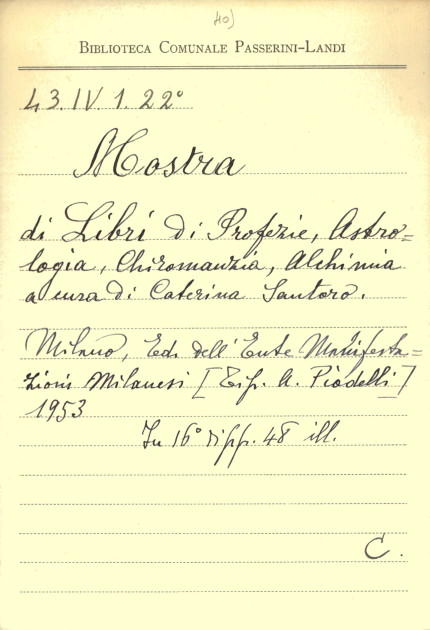 40)
BIBLIOTECA COMUNALE PASSERINI-LANDI
L 3. IV. 1. 22°
Mostra
di Libri di Profezie, Astro=
logia, Chiromanzia, Alchimia
a cura di Caterina Santoro.
Milano, Ed. dell'Ente Manifesta=
zioni Milanesi [Tip. A. Piodelli]
1953
In 16° di pp. 48 ill.
C.